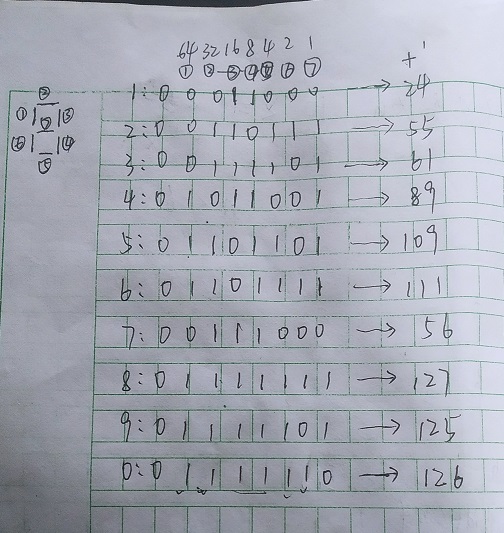 64 32 16 8 4 2 1
① ② ③ ④ ⑤ ⑥ ⑦
②
① ③
⑥ ④
⑤
1: 0 0 0 1 1 0 0 0 → 24
2: 0 0 1 1 0 1 1 1 → 55
3: 0 0 1 1 1 1 0 1 → 61
4: 0 1 0 1 1 0 0 1 → 89
5: 0 1 1 0 1 1 0 1 → 109
6: 0 1 1 0 1 1 1 1 → 111
7: 0 0 1 1 1 0 0 0 → 56
8: 0 1 1 1 1 1 1 1 → 127
9: 0 1 1 1 1 1 0 1 → 125
0: 0 1 1 1 1 1 1 0 → 126